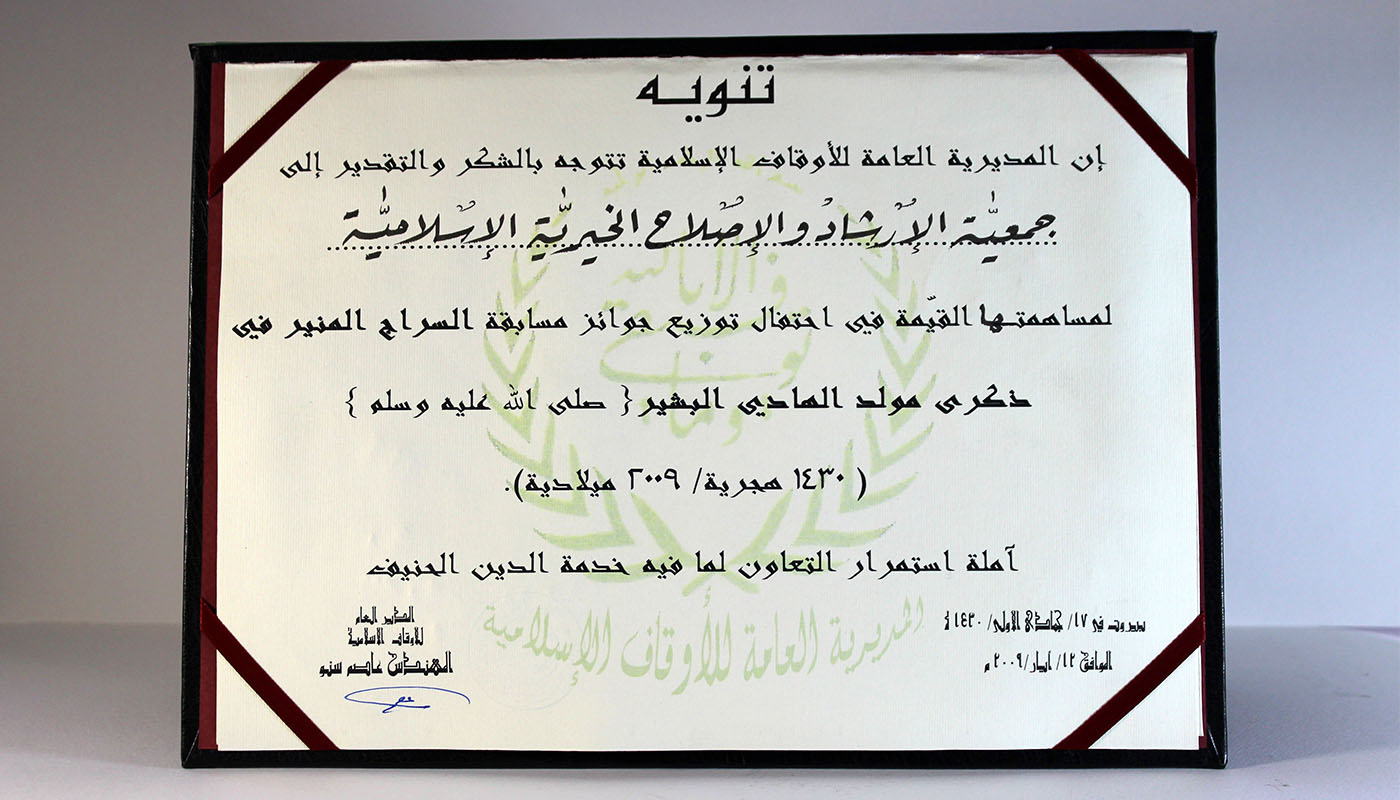 تنويه
إن المديرية العامة للأوقاف الإسلامية تتوجه بالشكر والتقدير إلى
جمعيّة الإرشاد والإصلاح الخيريّة الإسلاميّة
لمساهمتها القيّمة في احتفال توزيع جوائز مسابقة السراج المنير في
ذكرى مولد الهادي البشير { صلى الله عليه وسلم }
( ١٤٣٠ هجرية/ ٢٠٠٩ ميلادية).
آملة استمرار التعاون لما فيه خدمة الدين الحنيف
بيروت في ١٧/ جمادى الاولى/ ١٤٣٠ هـ
الموافق ١٢/ ايار/ ٢٠٠٩ م
المدير العام
للاوقاف الاسلامية
المهندس عاصم سنو
المديرية العامة للأوقاف الإسلامية